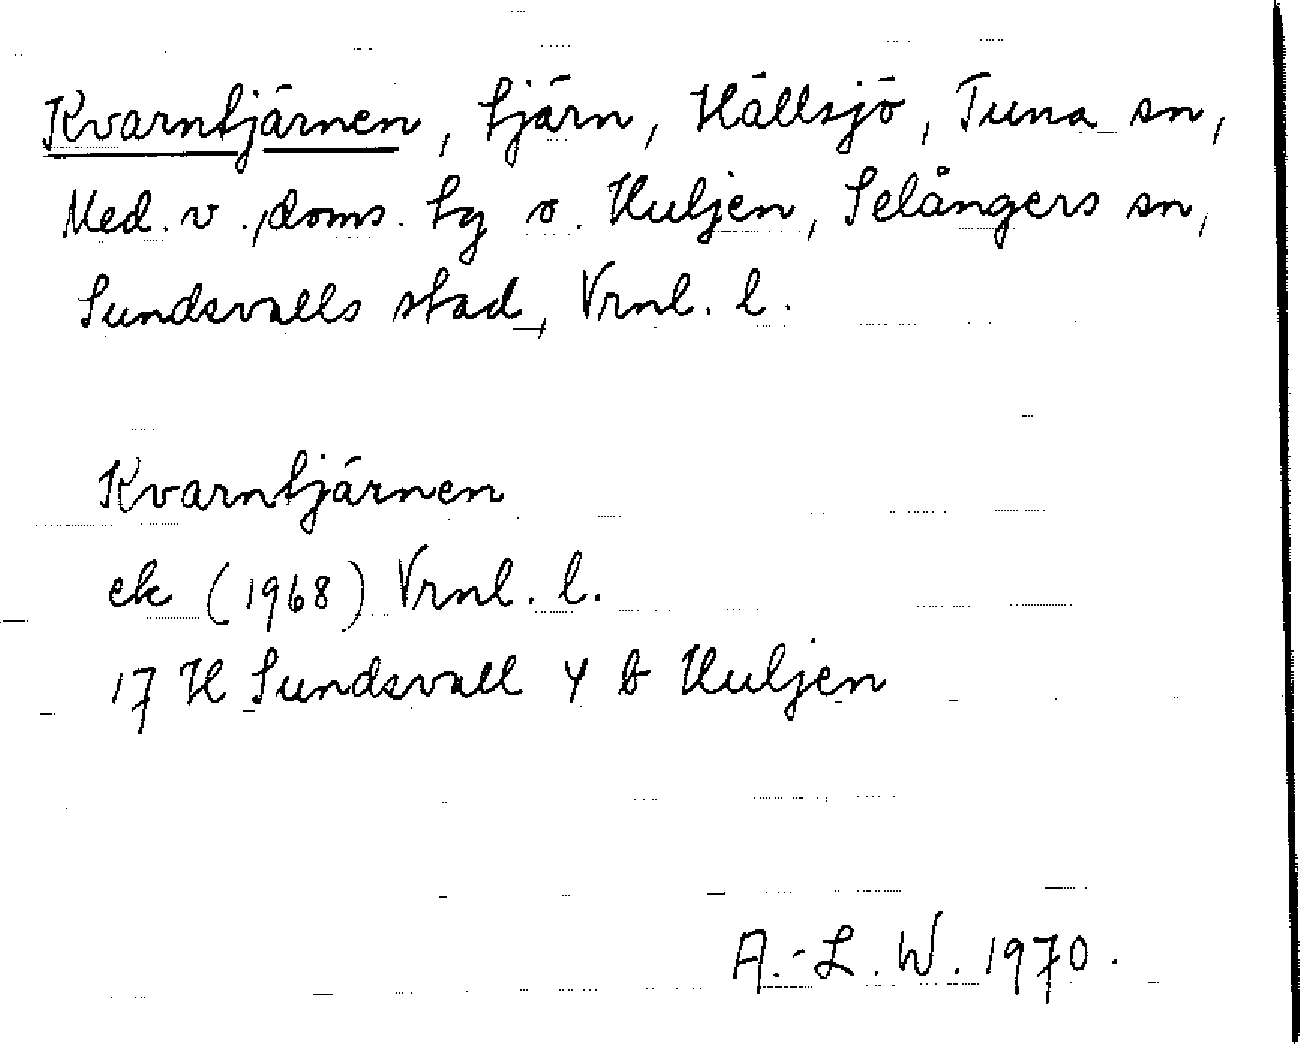 Kvarntjärnen, tjärn, Hällsjö, Tuna sn,
Med. v. doms. tg o. Huljen, Selångers sn,
Sundsvalls stad, Vrnl. l.
Kvarntjärnen
ek (1968) Vrnl. l.
17 H Sundsvall 4 b Huljen
A.-L. W. 1970.